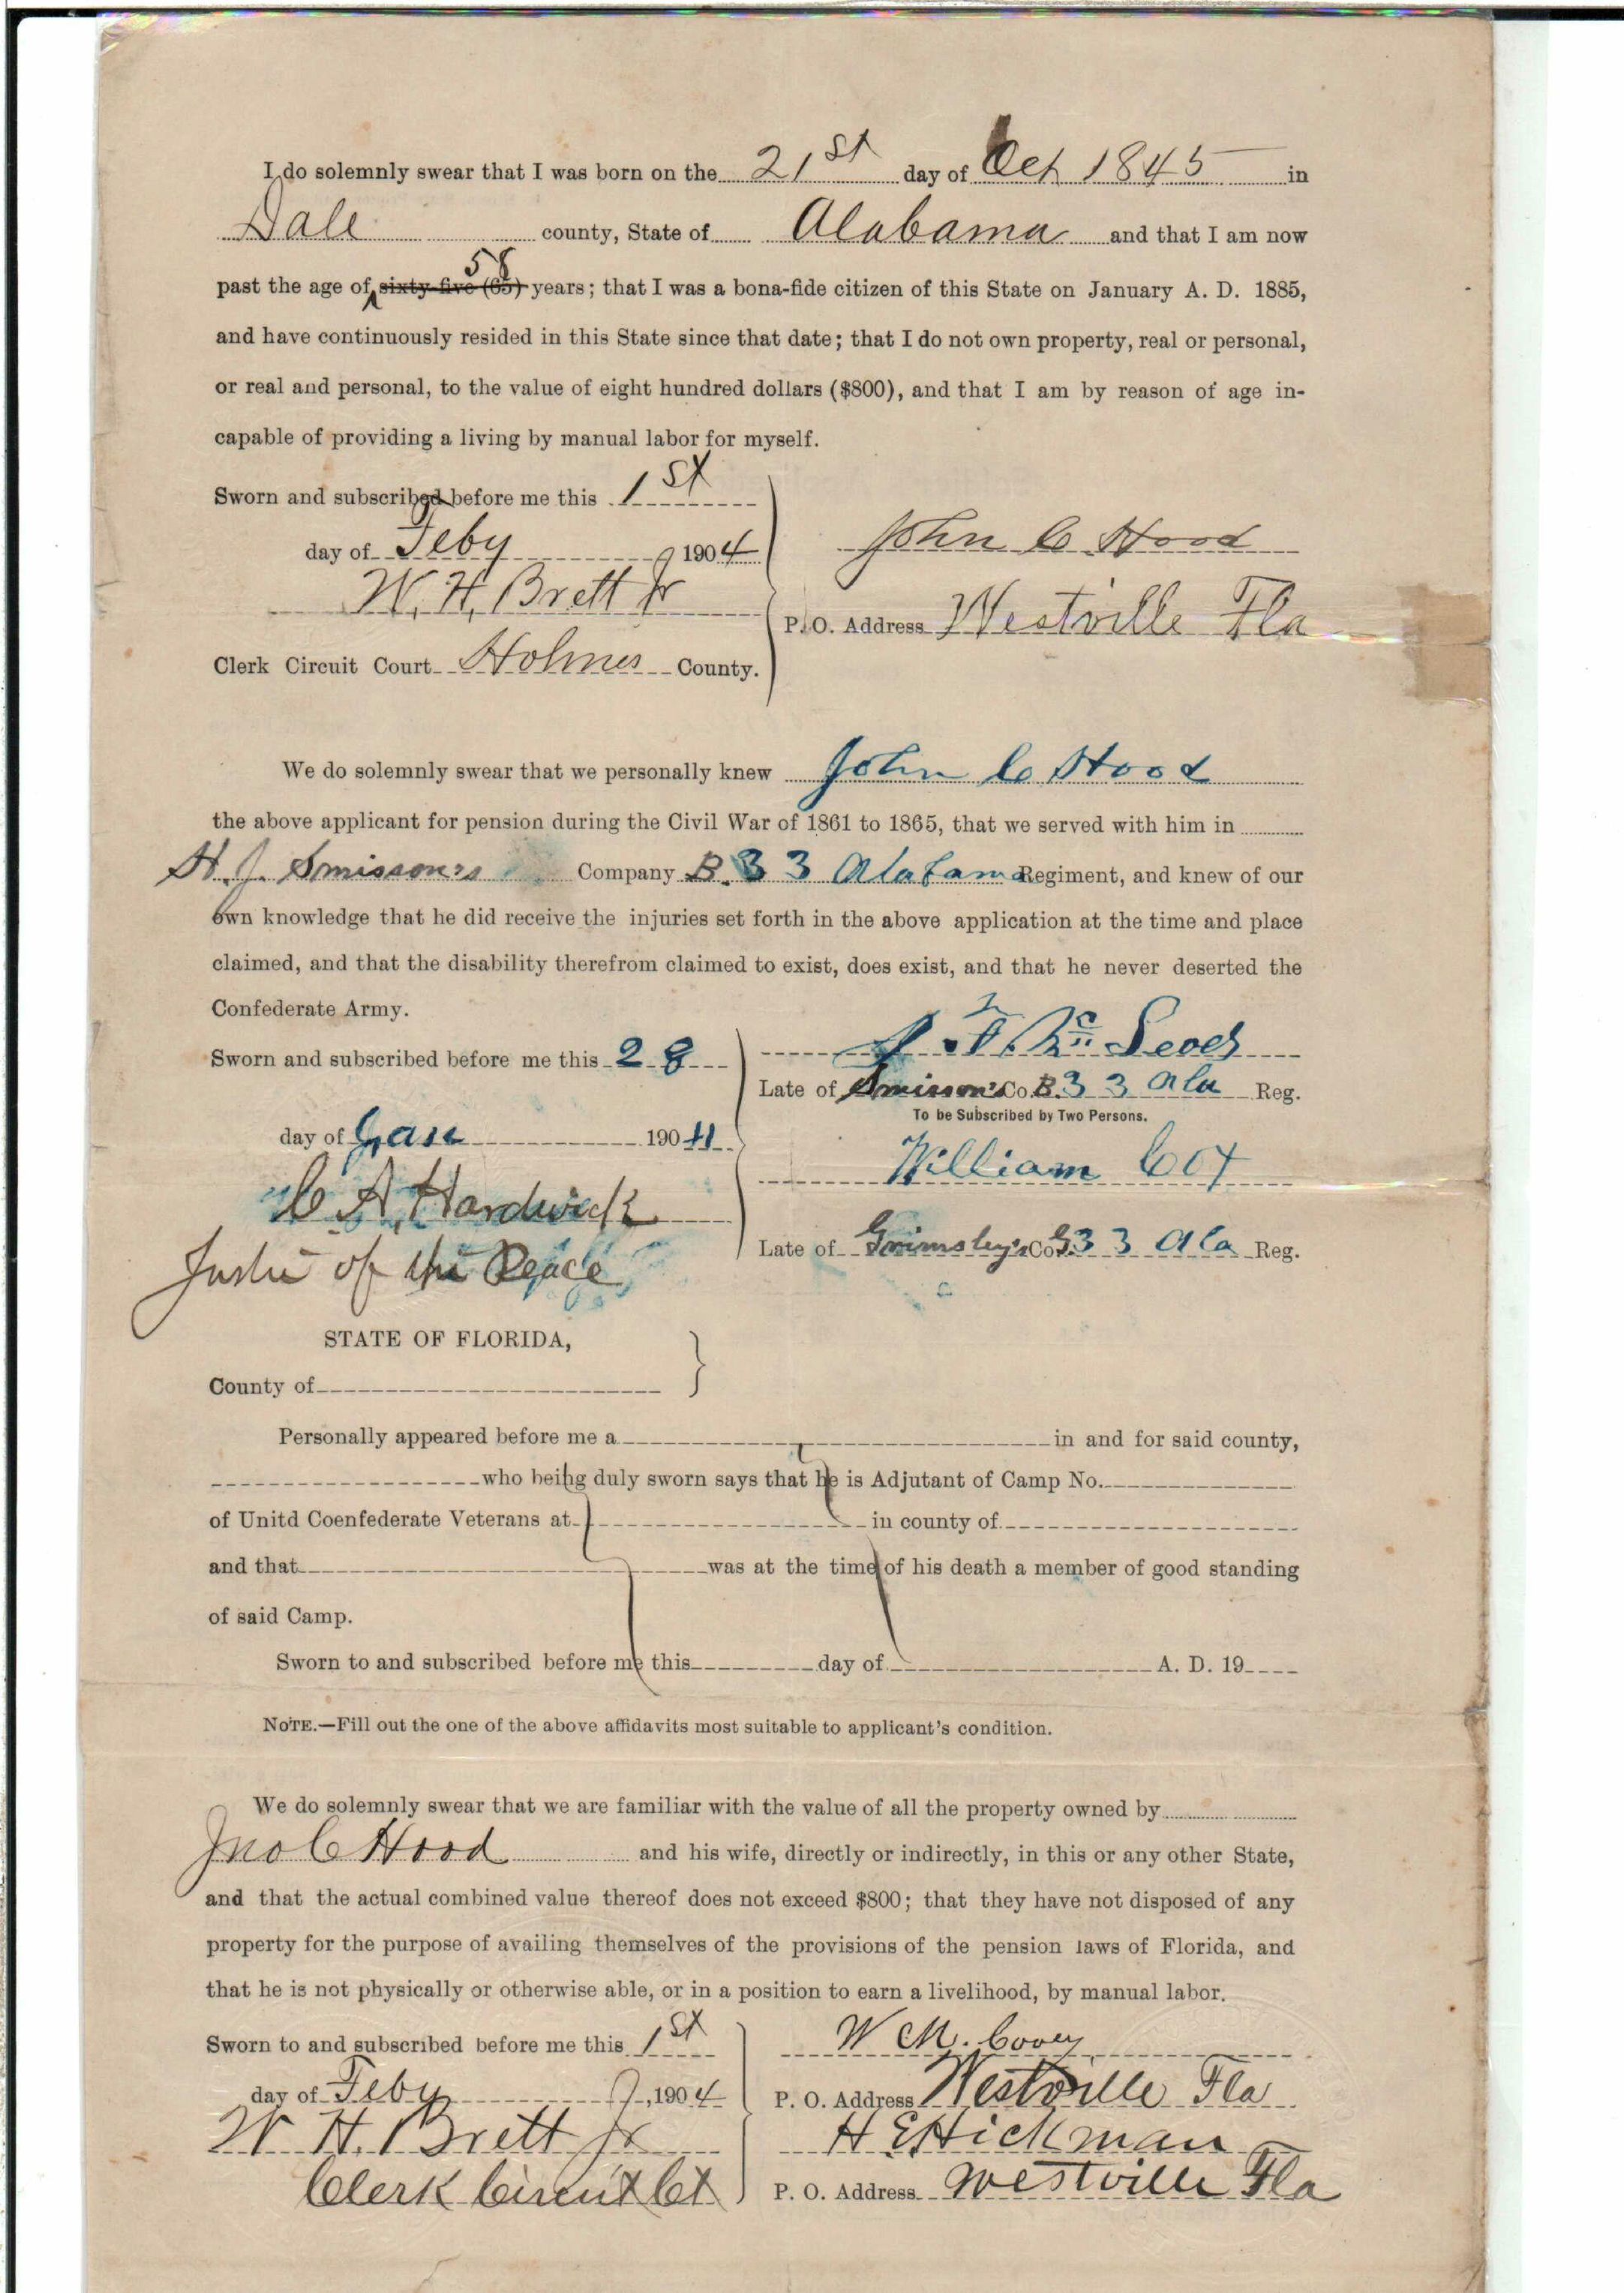 I do solemnly swear that I was born on the 21st day of Oct 1845 in
Dale county, State of Alabama and that I am now
58
past the age of sixty-five (65) years; that I was a bona-fide citizen of this State on January A. D. 1885,
and have continuously resided in this State since that date; that I do not own property, real or personal,
or real and personal, to the value of eight hundred dollars ($800), and that I am by reason of age in-
capable of providing a living by manual labor for myself.
Sworn and subscribed before me this 1st
day of Feby 1904
John C Hood
W. H. Brett Jr
P. O. Address Westville Fla
Clerk Circuit Court Holmes County.
We do solemnly swear that we personally knew John C Hood
the above applicant for pension during the Civil War of 1861 to 1865, that we served with him in
H. J. Smisson's Company B. 33 Alabama Regiment, and knew of our
own knowledge that he did receive the injuries set forth in the above application at the time and place
claimed, and that the disability therefrom claimed to exist, does exist, and that he never deserted the
Confederate Army.
Sworn and subscribed before me this 28
Late of Smisson's Co. B. 33 Ala Reg.
To be Subscribed by Two Persons.
day of Jan 1904
William Cox
C A Hardwick
Late of Grimsley's Co G 33 Ala Reg.
Justic of the Peace
STATE OF FLORIDA,
County of
Personally appeared before me a in and for said county,
who being duly sworn says that he is Adjutant of Camp No.
of Unitd Coenfederate Veterans at in county of
and that was at the time of his death a member of good standing
of said Camp.
Sworn to and subscribed before me this day of A. D. 19
NOTE.—Fill out the one of the above affidavits most suitable to applicant's condition.
We do solemnly swear that we are familiar with the value of all the property owned by
Jno C Hood and his wife, directly or indirectly, in this or any other State,
and that the actual combined value thereof does not exceed $800; that they have not disposed of any
property for the purpose of availing themselves of the provisions of the pension laws of Florida, and
that he is not physically or otherwise able, or in a position to earn a livelihood, by manual labor.
Sworn to and subscribed before me this 1st
W M.
day of Feby, 1904
P. O. Address Westville Fla
W H. Brett Jr
H E Hickman
Clerk Circuit Ct
P. O. Address Westville Fla